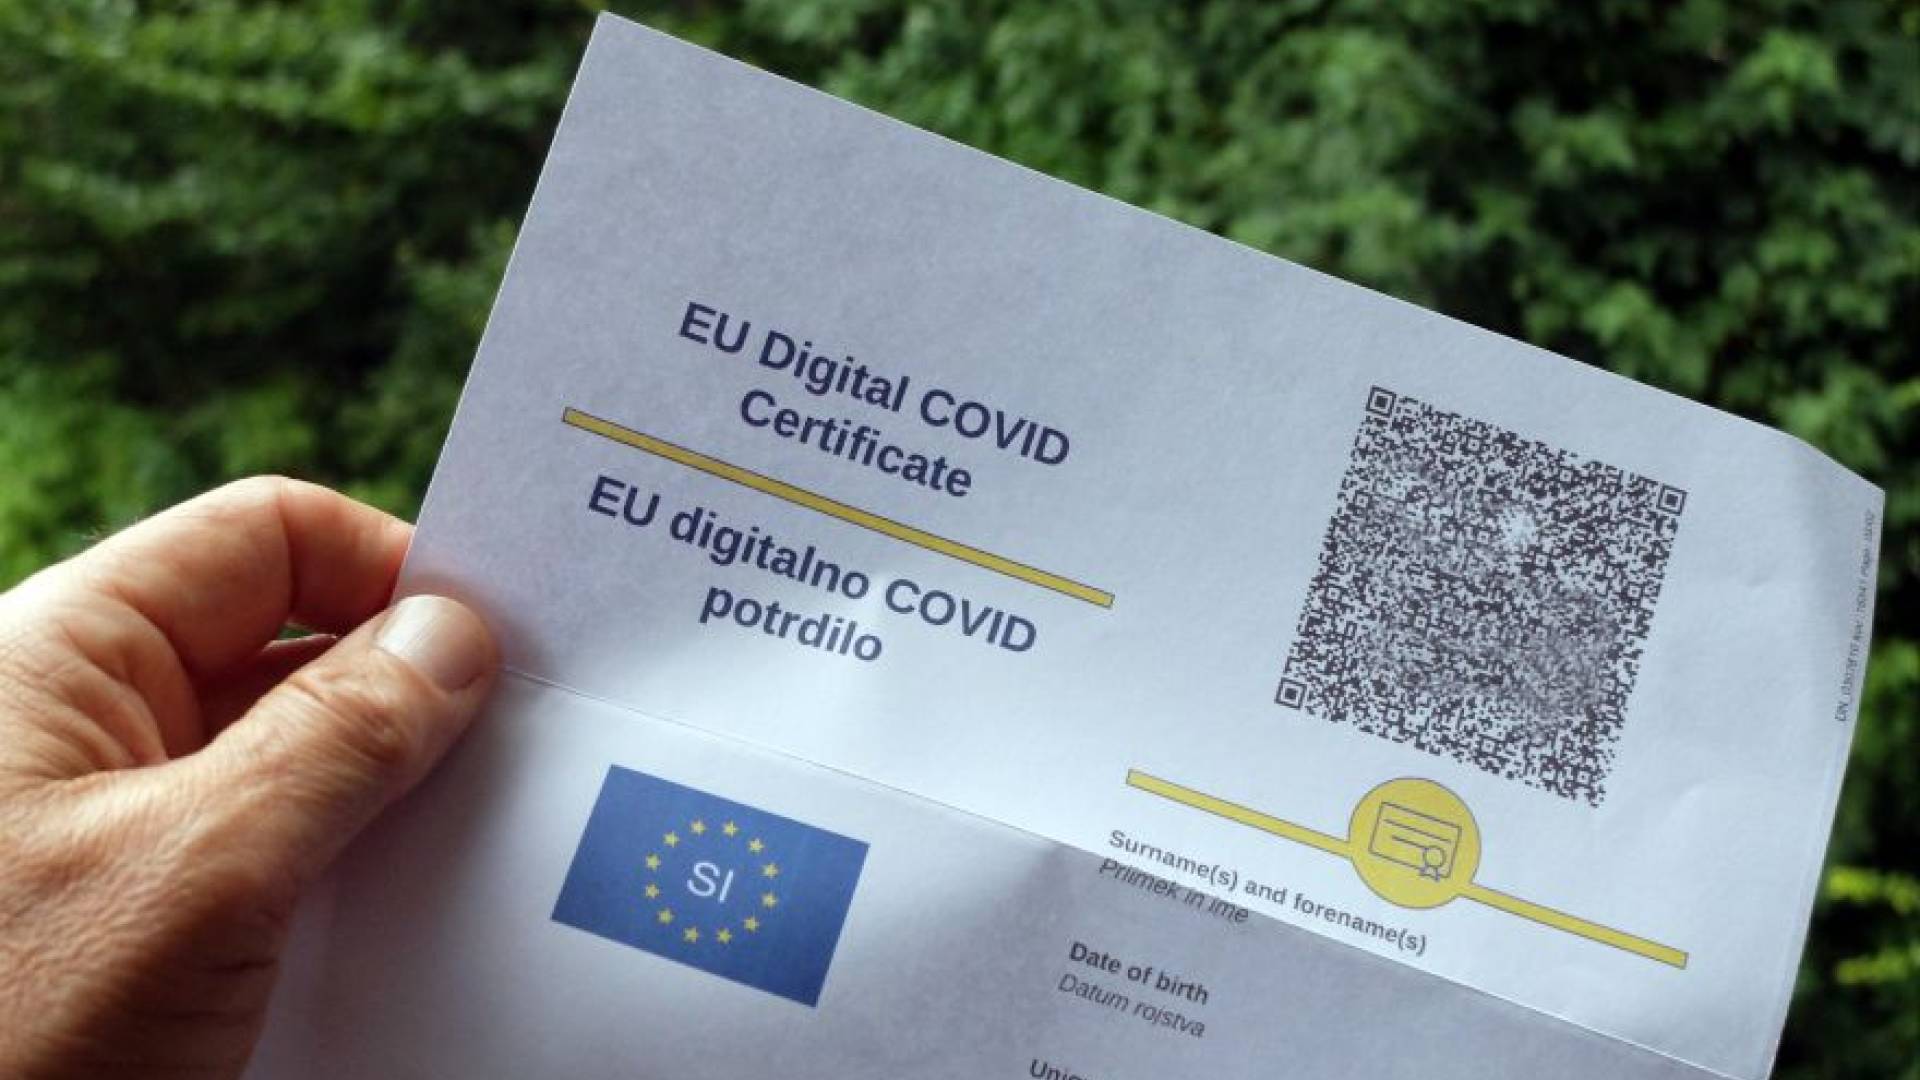 EU Digital COVID
Certificate
EU digitalno COVID
potrdilo
SI
Surname(s) and forename(s)
Priimek in ime
Date of birth
Datum rojstva